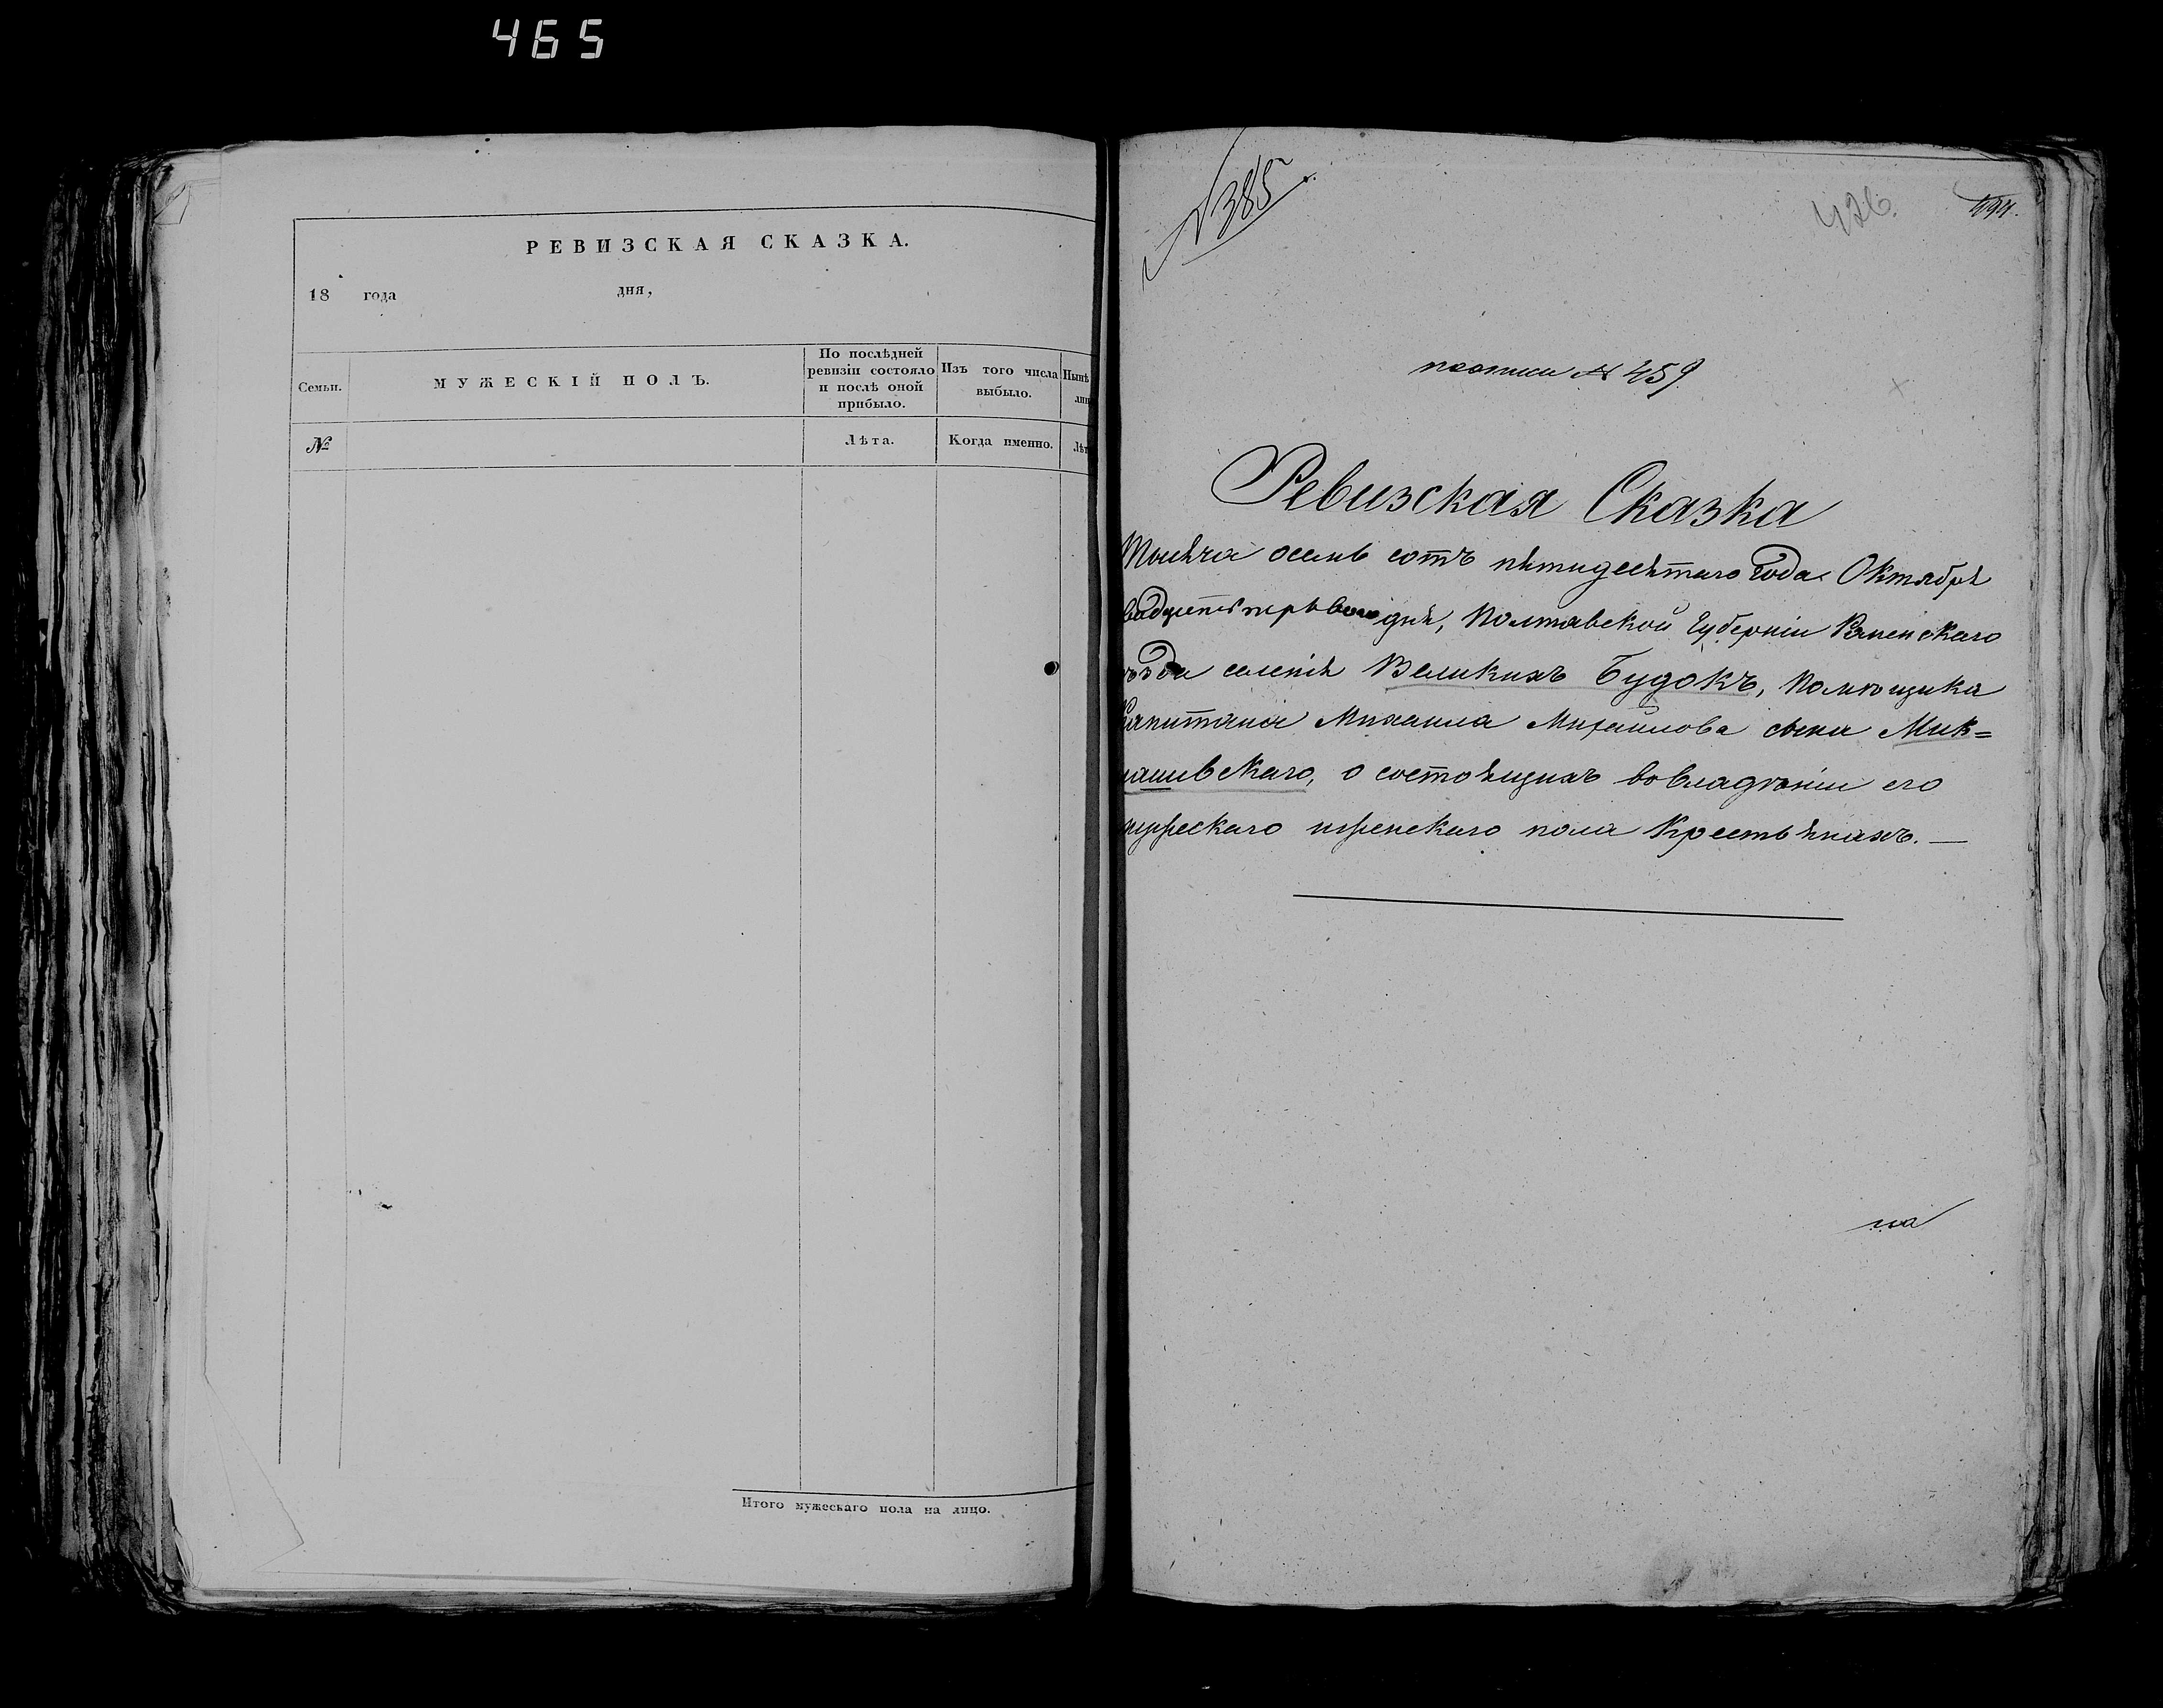 465
РЕВИЗСКАЯ СКАЗКА.
18 года дня,
Семьи.
МУЖЕСКІЙ ПОЛЪ.
По послѣдней
ревизіи состояло
и послѣ оной
прибыло.
Изъ того числа
выбыло.
Нынѣ
№
Лѣта.
Когда именно.
Итого мужескаго пола на лицо.
№ 385
426.
№ 459
Ревизская Сказка
Тысяча осемь сотъ пятидесятаго года Октября
первого дня, Полтавской Губерніи Роменскаго
селенія Великихъ Будокъ, Помѣщика
Капитана Михаила Михайлова сына Мик=
лашевскаго, о состоящихъ во владѣніи его
мужескаго иженскаго пола Крестьянахъ. —